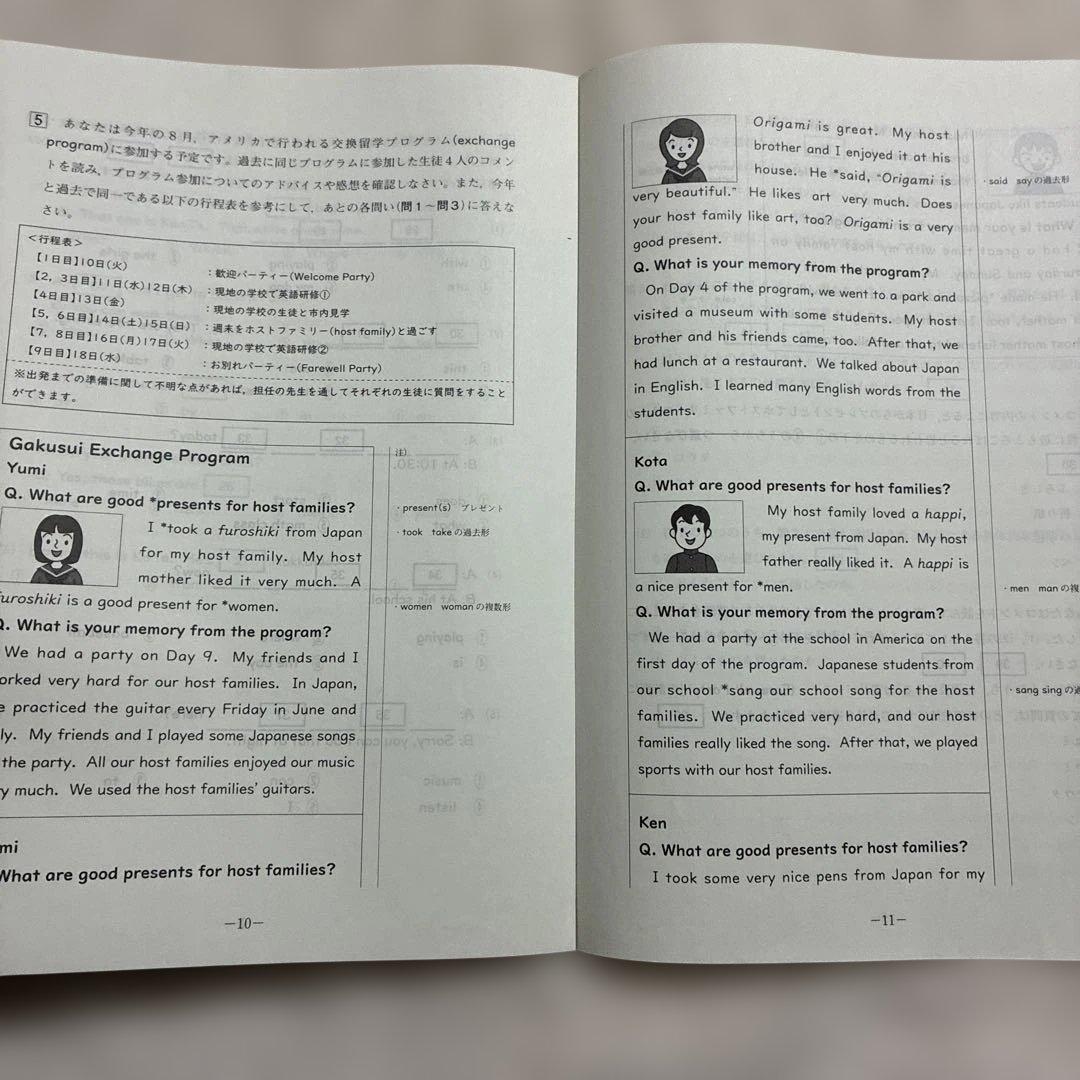 5 あなたは今年の8月，アメリカで行われる交換留学プログラム(exchange
program)に参加する予定です。過去に同じプログラムに参加した生徒4人のコメン
トを読み，プログラム参加についてのアドバイスや感想を確認しなさい。また，今年
と過去で同一である以下の行程表を参考にして，あとの各問い(問1～問3)に答えな
さい。
<行程表>
【1日目】10日(火) ：歓迎パーティー(Welcome Party)
【2，3日目】11日(水)12日(木) ：現地の学校で英語研修①
【4日目】13日(金) ：現地の学校の生徒と市内見学
【5，6日目】14日(土)15日(日) ：週末をホストファミリー(host family)と過ごす
【7，8日目】16日(月)17日(火) ：現地の学校で英語研修②
【9日目】18日(水) ：お別れパーティー(Farewell Party)
※出発までの準備に関して不明な点があれば，担任の先生を通してそれぞれの生徒に質問をすること
ができます。
Gakusui Exchange Program
Yumi
Q. What are good *presents for host families?
I *took a furoshiki from Japan
for my host family. My host
mother liked it very much. A
furoshiki is a good present for *women.
Q. What is your memory from the program?
We had a party on Day 9. My friends and I
orked very hard for our host families. In Japan,
e practiced the guitar every Friday in June and
ly. My friends and I played some Japanese songs
the party. All our host families enjoyed our music
y much. We used the host families' guitars.
mi
What are good presents for host families?
注）
・present(s) プレゼント
・took takeの過去形
・women womanの複数形
－10－
Origami is great. My host
brother and I enjoyed it at his
house. He *said, "Origami is
very beautiful." He likes art very much. Does
your host family like art, too? Origami is a very
good present.
Q. What is your memory from the program?
On Day 4 of the program, we went to a park and
visited a museum with some students. My host
brother and his friends came, too. After that, we
had lunch at a restaurant. We talked about Japan
in English. I learned many English words from the
students.
Kota
Q. What are good presents for host families?
My host family loved a happi,
my present from Japan. My host
father really liked it. A happi is
a nice present for *men.
Q. What is your memory from the program?
We had a party at the school in America on the
first day of the program. Japanese students from
our school *sang our school song for the host
families. We practiced very hard, and our host
families really liked the song. After that, we played
sports with our host families.
Ken
Q. What are good presents for host families?
I took some very nice pens from Japan for my
・said sayの過去形
・men manの複
・sang singの過
－11－